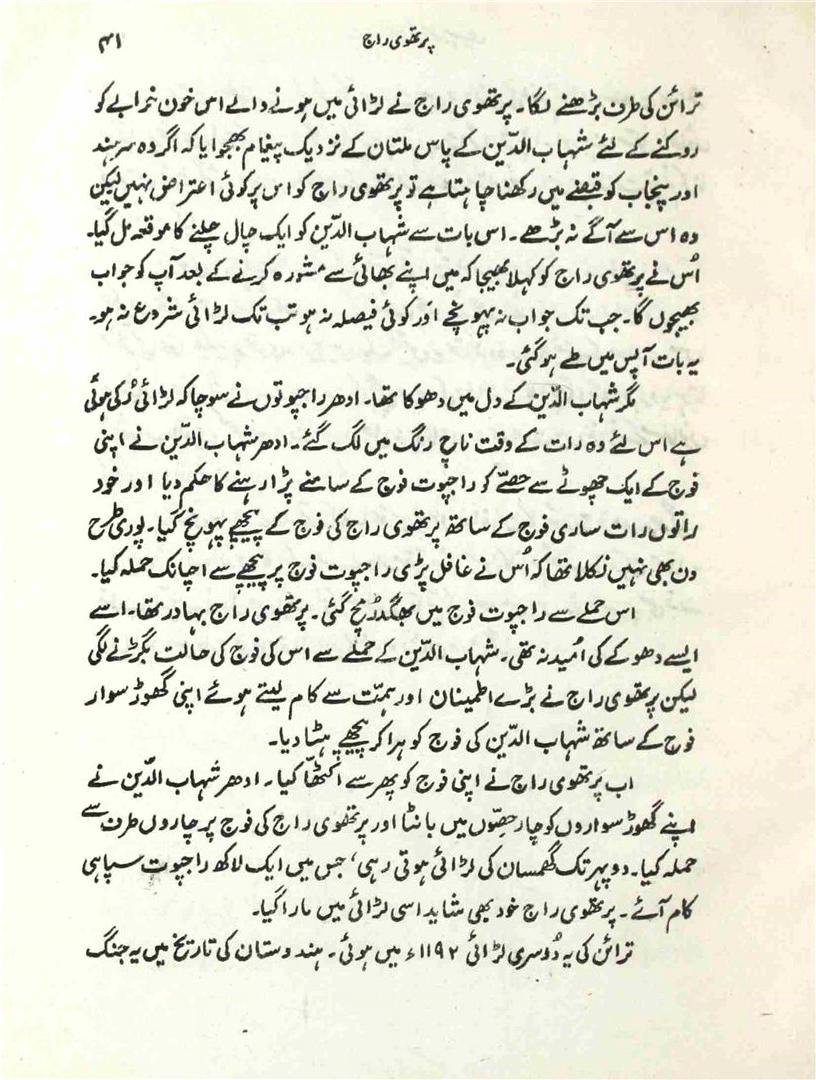 پرتھوی راج
۴۱
ترائن کی طرف بڑھنے لگا۔ پرتھوی راج نے لڑائی میں ہونے والے اس خون خرابے کو
روکنے کے لئے شہاب الدّین کے پاس ملتان کے نزدیک پیغام بھجوایا کہ اگر وہ سرہند
اور پنجاب کو قبضے میں رکھنا چاہتا ہے تو پرتھوی راج کو اس پر کوئی اعتراض نہیں لیکن
وہ اس سے آگے نہ بڑھے۔ اس بات سے شہاب الدّین کو ایک چال چلنے کا موقعہ مل گیا۔
اُس نے پرتھوی راج کو کہلا بھیجا کہ میں اپنے بھائی سے مشورہ کرنے کے بعد آپ کو جواب
بھیجوں گا۔ جب تک جواب نہ پہونچے اور کوئی فیصلہ نہ ہو تب تک لڑائی شروع نہ ہو۔
یہ بات آپس میں طے ہو گئی۔
مگر شہاب الدّین کے دل میں دھوکا تھا۔ ادھر راجپوتوں نے سوچا کہ لڑائی رُکی ہوئی
ہے اس لئے وہ رات کے وقت ناچ رنگ میں لگ گئے۔ ادھر شہاب الدّین نے اپنی
فوج کے ایک چھوٹے سے حصّے کو راجپوت فوج کے سامنے پڑا رہنے کا حکم دیا اور خود
راتوں رات ساری فوج کے ساتھ پرتھوی راج کی فوج کے پیچھے پہونچ گیا۔ پوری طرح
دن بھی نہیں نکلا تھا کہ اُس نے غافل پڑی راجپوت فوج پر پیچھے سے اچانک حملہ کیا۔
اس حملے سے راجپوت فوج میں بھگدڑ مچ گئی۔ پرتھوی راج بہادر تھا۔ اسے
ایسے دھوکے کی اُمید نہ تھی۔ شہاب الدّین کے حملے سے اس کی فوج کی حالت بگڑنے لگی
لیکن پرتھوی راج نے بڑے اطمینان اور ہمّت سے کام لیتے ہوئے اپنی گھوڑ سوار
فوج کے ساتھ شہاب الدّین کی فوج کو ہرا کر پیچھے ہٹا دیا۔
اب پرتھوی راج نے اپنی فوج کو پھر سے اکٹھّا کیا۔ ادھر شہاب الدّین نے
اپنے گھوڑ سواروں کو چار حصّوں میں بانٹا اور پرتھوی راج کی فوج پر چاروں طرف سے
حملہ کیا۔ دوپہر تک گھمسان کی لڑائی ہوتی رہی، جس میں ایک لاکھ راجپوت سپاہی
کام آئے۔ پرتھوی راج خود بھی شاید اسی لڑائی میں مارا گیا۔
ترائن کی یہ دُوسری لڑائی ۱۱۹۲ء میں ہوئی۔ ہندوستان کی تاریخ میں یہ جنگ